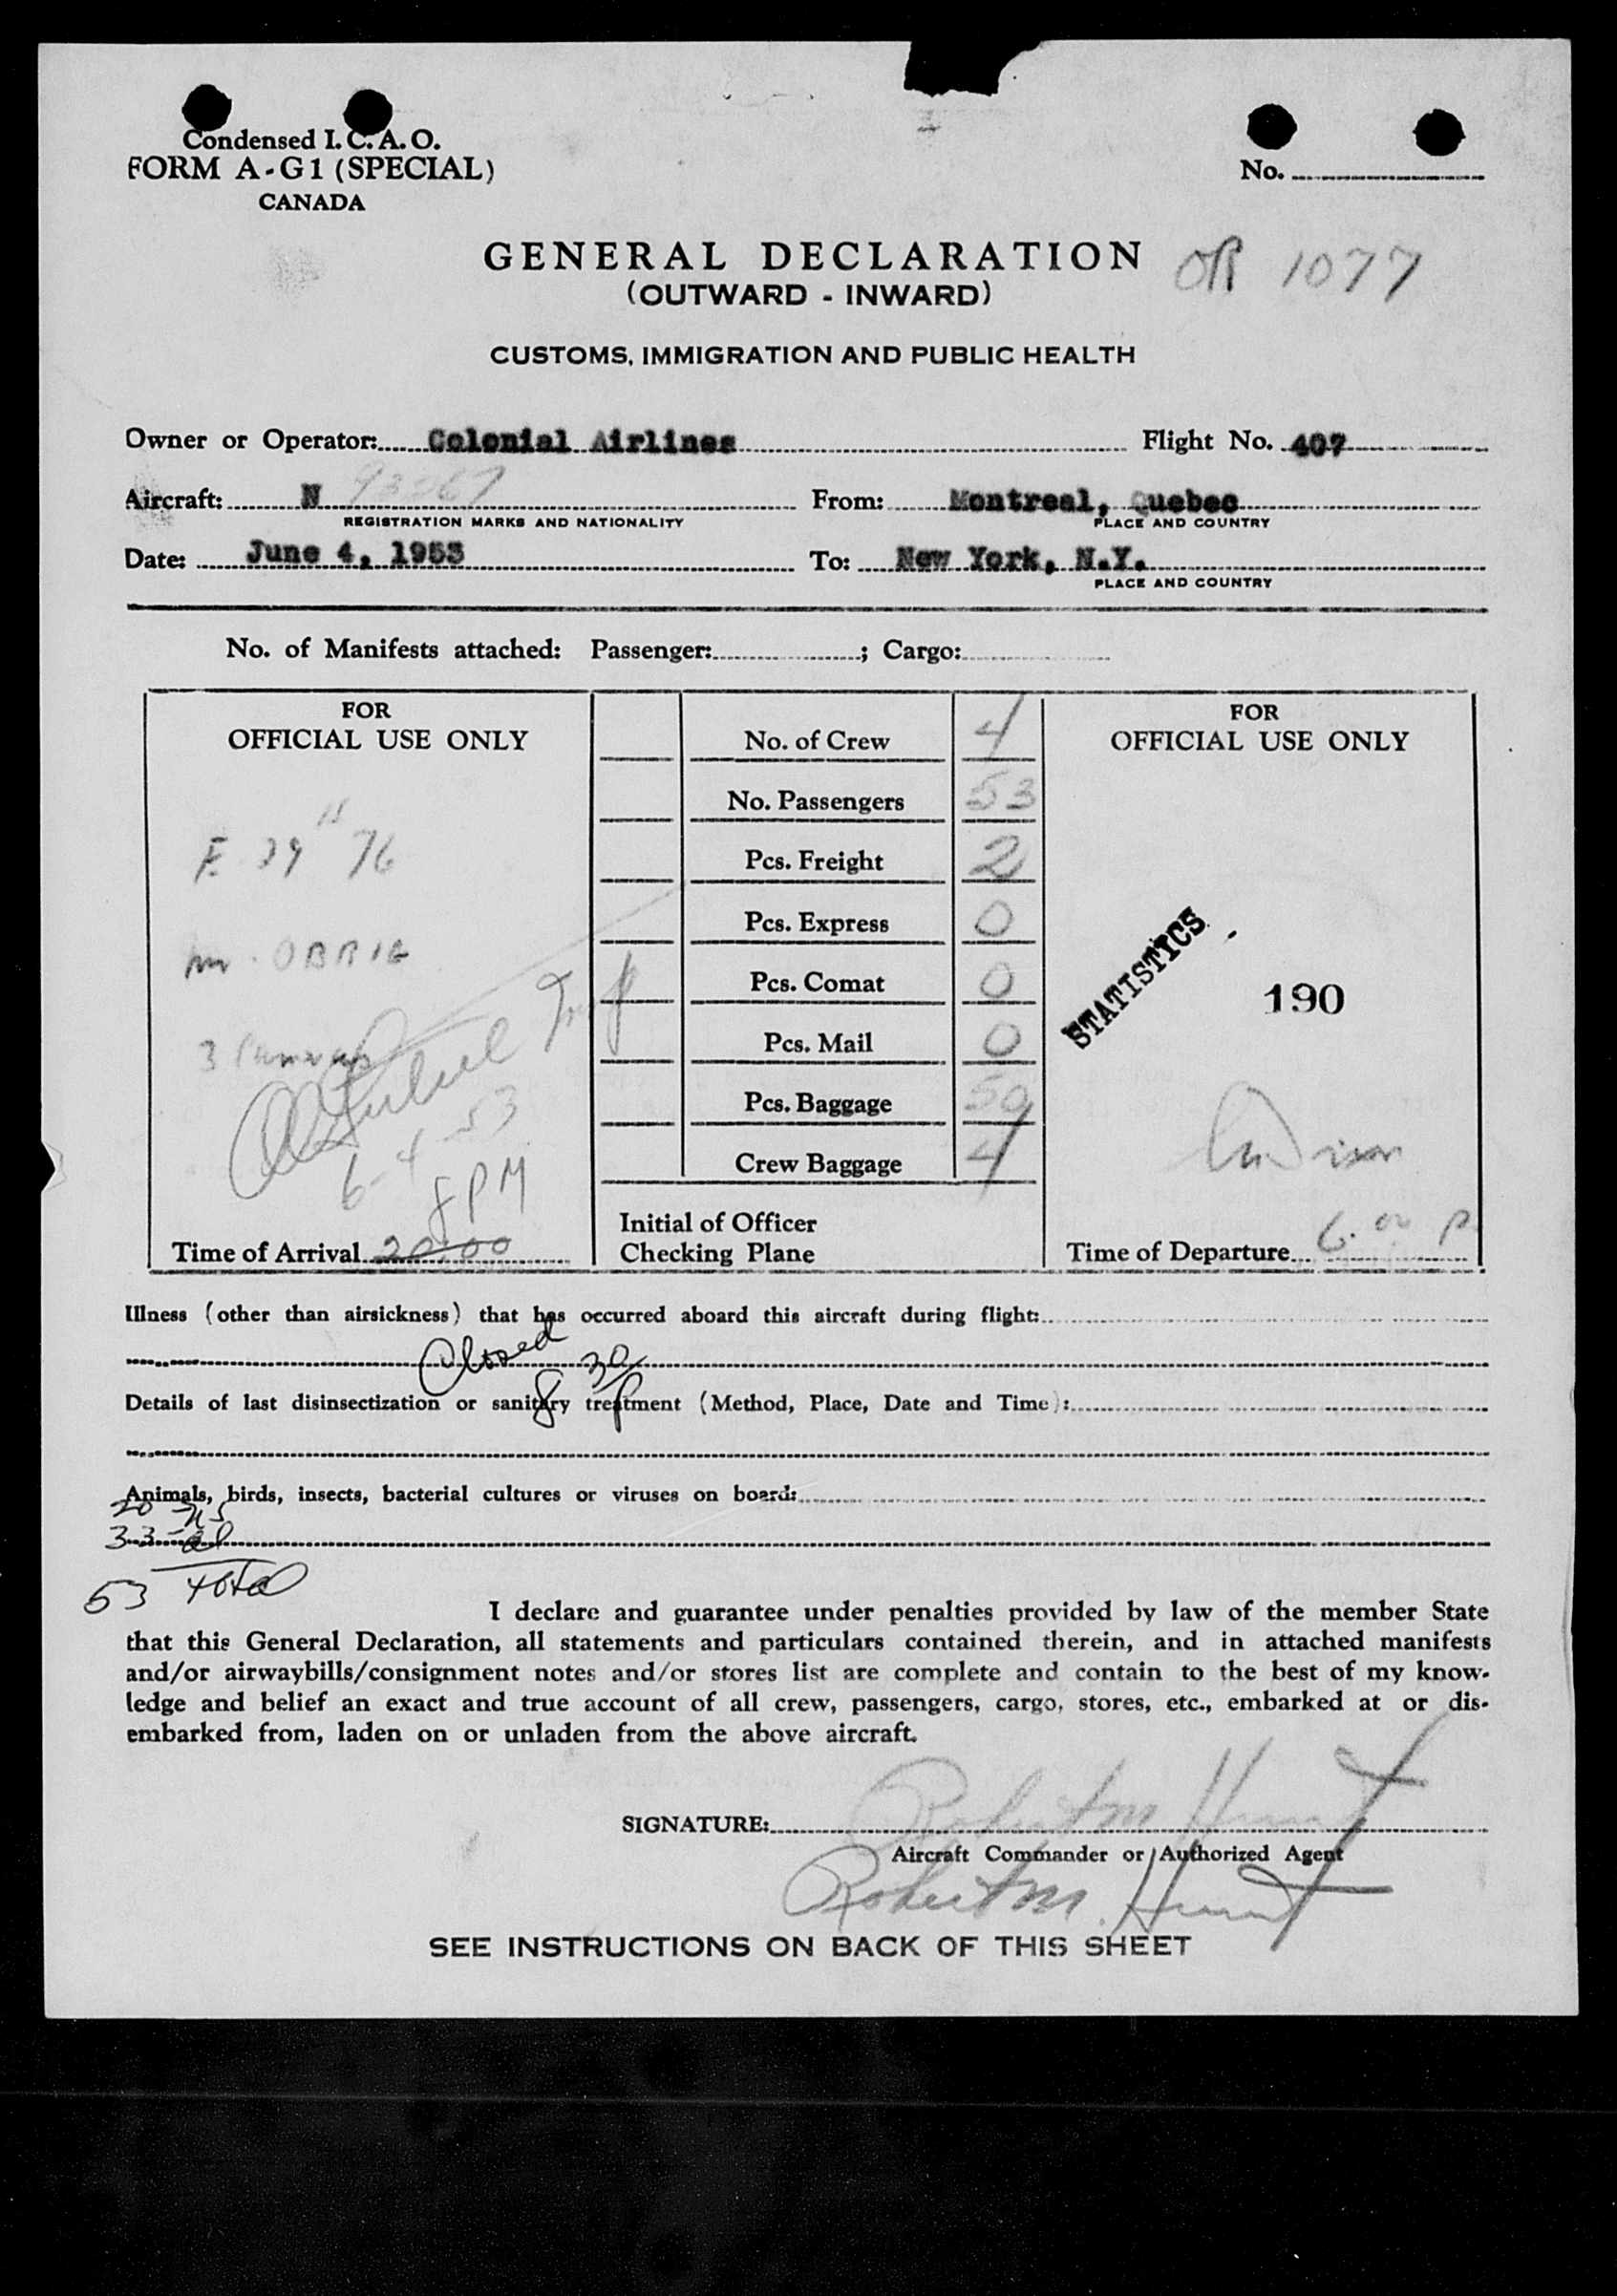 Condensed I. C. A. O.
FORM A-G1 (SPECIAL)
CANADA
No.
GENERAL DECLARATION
OR 1077
(OUTWARD - INWARD)
CUSTOMS, IMMIGRATION AND PUBLIC HEALTH
Owner or Operator: Colonial Airlines Flight No. 407
Aircraft: N From: Montreal, Quebec
REGISTRATION MARKS AND NATIONALITY PLACE AND COUNTRY
Date: June 4, 1953 To: New York, N.Y.
PLACE AND COUNTRY
No. of Manifests attached: Passenger: ; Cargo:
FOR
OFFICIAL USE ONLY
6-4-53
8 PM
Time of Arrival 20:00
No. of Crew 4
No. Passengers 53
Pcs. Freight 2
Pcs. Express 0
Pcs. Comat 0
Pcs. Mail 0
Pcs. Baggage 50
Crew Baggage 4
Initial of Officer
Checking Plane
FOR
OFFICIAL USE ONLY
STATISTICS
190
Time of Departure 6.00 P
Illness (other than airsickness) that has occurred aboard this aircraft during flight:
Closed
8 30 P
Details of last disinsectization or sanitary treatment (Method, Place, Date and Time):
Animals, birds, insects, bacterial cultures or viruses on board:
20
33 - al
53 total
I declare and guarantee under penalties provided by law of the member State
that this General Declaration, all statements and particulars contained therein, and in attached manifests
and/or airwaybills/consignment notes and/or stores list are complete and contain to the best of my know-
ledge and belief an exact and true account of all crew, passengers, cargo, stores, etc., embarked at or dis-
embarked from, laden on or unladen from the above aircraft.
SIGNATURE: Robert M Hunt
Aircraft Commander or Authorized Agent
Robert M. Hunt
SEE INSTRUCTIONS ON BACK OF THIS SHEET